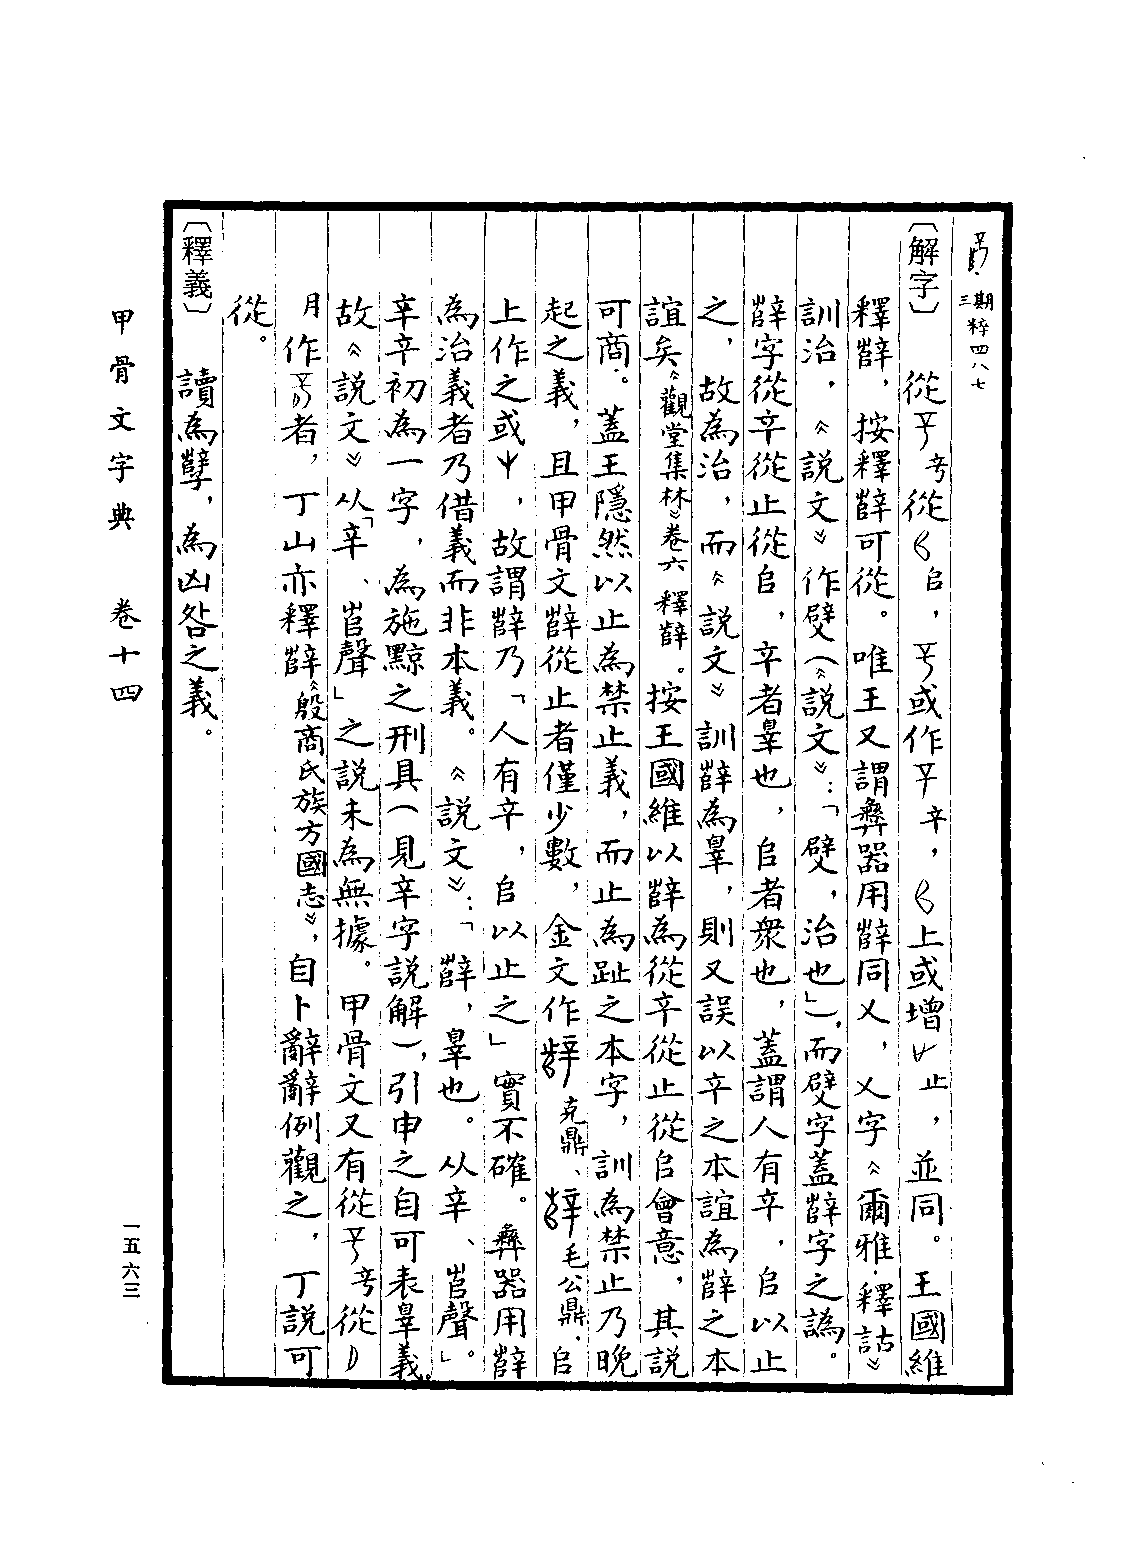 三期 粹四八七
〔解字〕 從䇂從𠂤,或作辛,上或增止,並同。王國維
釋辥,按釋辥可從。唯王又謂彝器用辥同乂,乂字《爾雅·釋詁》
訓治,《說文》作𤔲(《說文》:「𤔲,治也」),而字蓋辥字之譌。
辥字從䇂從止從𠂤,䇂者辠也,𠂤者眾也,蓋謂人有䇂,𠂤以止
之,故為治,而《說文》訓辥為辠,則又誤以䇂之本誼為辥之本
誼矣《觀堂集林》卷六釋辥。按王國維以辥為從䇂從止從𠂤會意,其說
可商。蓋王隱然以止為禁止義,而止為趾之本字,訓為禁止乃晚
起之義,且甲骨文辥從止者僅少數,金文作 克鼎、 毛公鼎,𠂤
上作之或屮,故謂辥乃「人有䇂,𠂤以止之」實不確。彝器用辥
為治義者乃借義而非本義。《說文》:「辥,辠也。从辛、𡴎聲」。
辛䇂初為一字,為施黥之刑具(見辛字說解),引申之自可表辠義,
故《說文》「从辛、𡴎聲」之說未為無據。甲骨文又有從䇂從
月作者,丁山亦釋辥《殷商氏族方國志》,自卜辭辭例觀之,丁說可
從。
〔釋義〕 讀為孽,為凶咎之義。
甲骨文字典 卷十四
一五六三